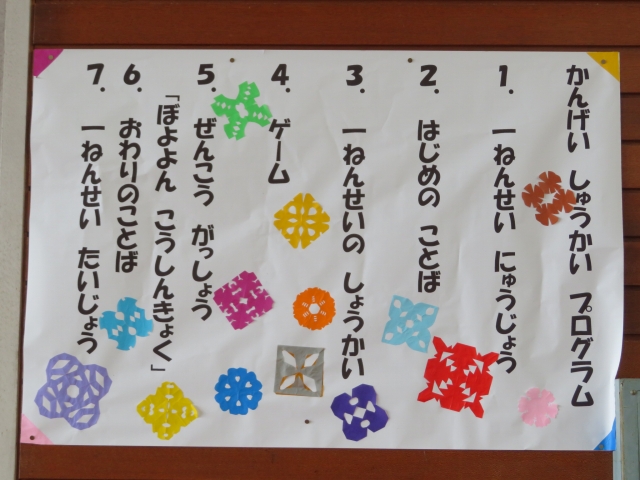 かんげい しゅうかい プログラム
1. 一ねんせい にゅうじょう
2. はじめの ことば
3. 一ねんせいの しょうかい
4. ゲーム
5. ぜんこう がっしょう
「ぼよよん こうしんきょく」
6. おわりのことば
7. 一ねんせい たいじょう